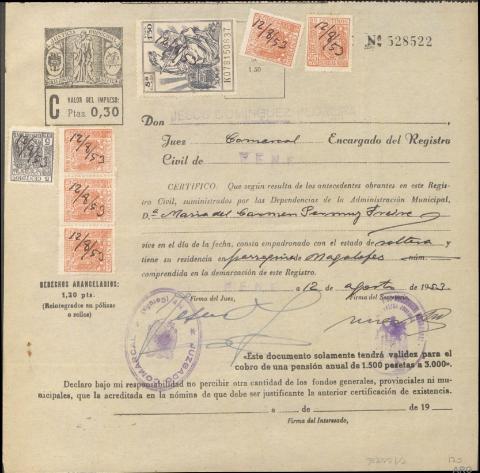 JUSTICIA MUNICIPAL
C VALOR DEL IMPRESO:
Ptas. 0,30
1'50
5ª CLASE
K0781508
12/8/53
12/8/53
Nº 528522
1.50
Don JESUS DOMINGUEZ
Juez Comarcal Encargado del Registro
Civil de NENE
12/8/53
12/8/53
12/8/53
12/8/53
CERTIFICO. Que según resulta de los antecedentes obrantes en este Regis-
tro Civil, suministrados por las Dependencias de la Administración Municipal,
D.ª Maria del Carmen Permuy Freire
vive en el día de la fecha, consta empadronado con el estado de soltera y
tiene su residencia en parroquia de Magalofes núm.
comprendida en la demarcación de este Registro.
DERECHOS ARANCELADOS:
1,20 pts.
(Reintegrados en pólizas
o sellos)
a 12 agosto de 1953
Firma del Juez, Firma del Secretario,
JUZGADO COMARCAL
«Este documento solamente tendrá validez para el
cobro de una pensión anual de 1.500 pesetas a 3.000».
Declaro bajo mi responsabilidad no percibir otra cantidad de los fondos generales, provinciales ni mu-
nicipales, que la acreditada en la nómina de que debe ser justificante la anterior certificación de existencia.
a de de 19
Firma del Interesado,